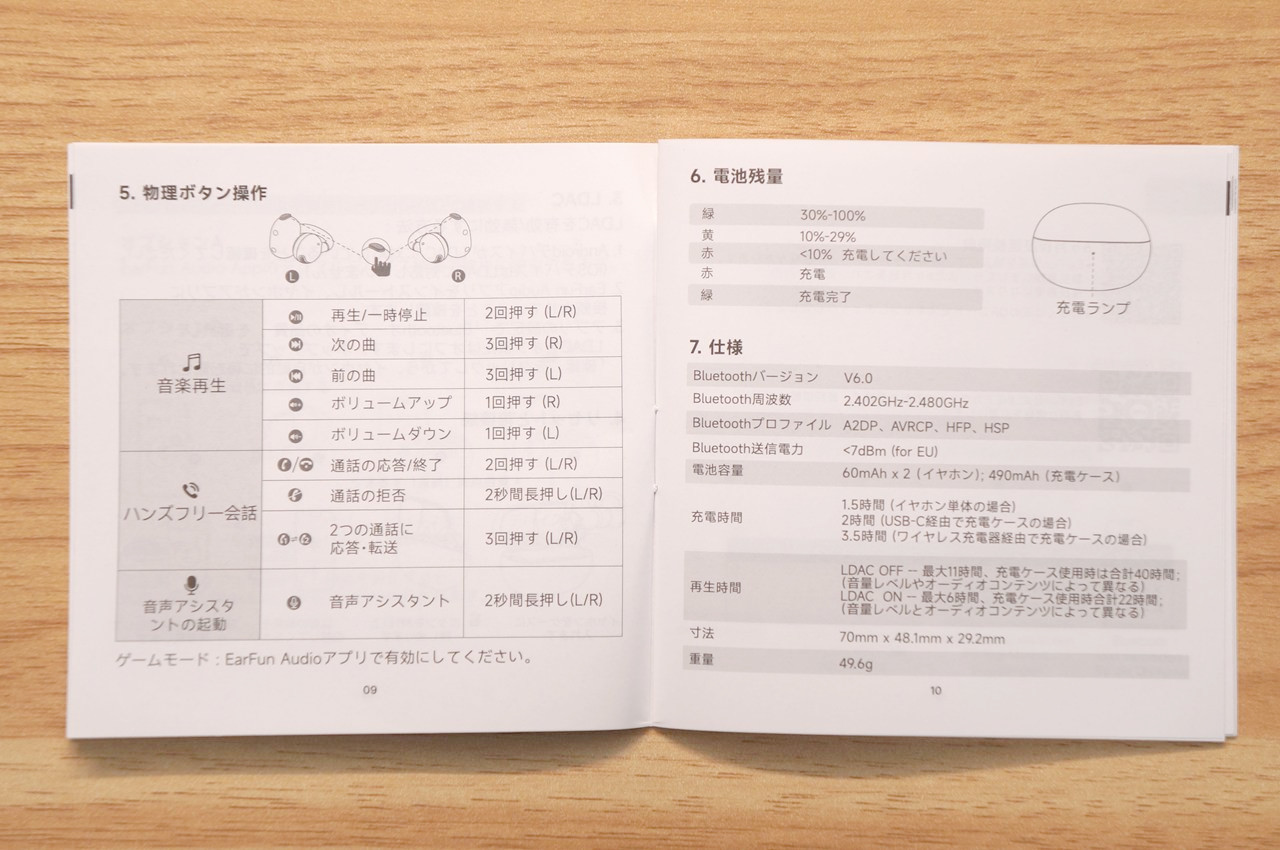 5. 物理ボタン操作
L
R
音楽再生
再生/一時停止 2回押す (L/R)
次の曲 3回押す (R)
前の曲 3回押す (L)
ボリュームアップ 1回押す (R)
ボリュームダウン 1回押す (L)
ハンズフリー会話
通話の応答/終了 2回押す (L/R)
通話の拒否 2秒間長押し(L/R)
2つの通話に
応答・転送 3回押す (L/R)
音声アシスタ
ントの起動
音声アシスタント 2秒間長押し(L/R)
ゲームモード : EarFun Audioアプリで有効にしてください。
09
6. 電池残量
緑 30%-100%
黄 10%-29%
赤 <10% 充電してください
赤 充電
緑 充電完了
充電ランプ
7. 仕様
Bluetoothバージョン V6.0
Bluetooth周波数 2.402GHz-2.480GHz
Bluetoothプロファイル A2DP、AVRCP、HFP、HSP
Bluetooth送信電力 <7dBm (for EU)
電池容量 60mAh x 2 (イヤホン); 490mAh (充電ケース)
充電時間
1.5時間 (イヤホン単体の場合)
2時間 (USB-C経由で充電ケースの場合)
3.5時間 (ワイヤレス充電器経由で充電ケースの場合)
再生時間
LDAC OFF -- 最大11時間、充電ケース使用時は合計40時間;
(音量レベルやオーディオコンテンツによって異なる)
LDAC ON -- 最大6時間、充電ケース使用時合計22時間;
(音量レベルとオーディオコンテンツによって異なる)
寸法 70mm x 48.1mm x 29.2mm
重量 49.6g
10